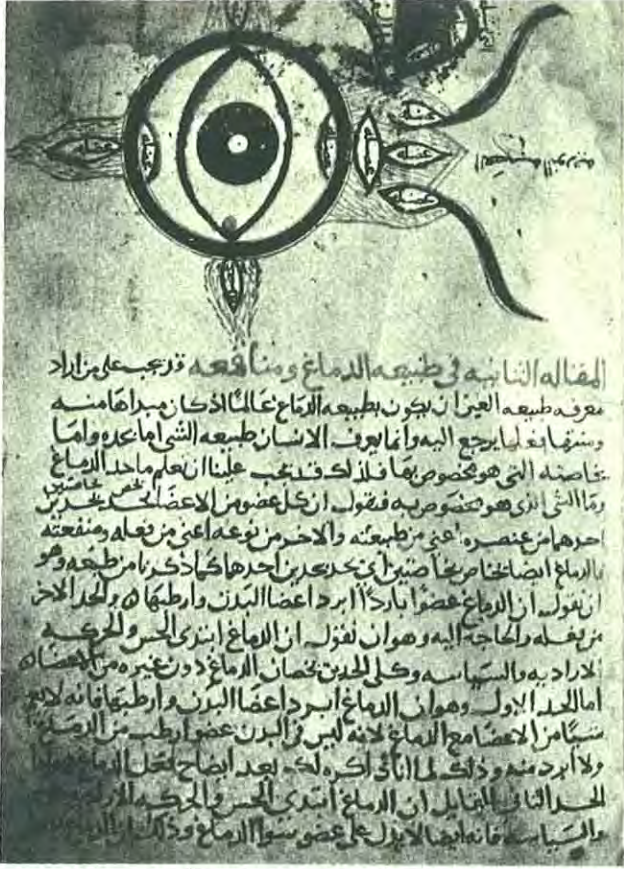 عضله
عضله
عضله
عضله
عضله
عضله
عضله
عضله
العصبه النوريه
المقاله الثانيه فى طبيعه الدماغ ومنافعه قد يجب على من اراد
معرفه طبيعه العين ان يكون بطبيعه الدماغ عالما اذ كان مبداها منه
اليه وانما يعرف الانسان طبيعه الشى اما بحده واما
بخاصته التى هو مخصوص بها فلذلك قد يجب علينا ان نعلم ما حد الدماغ
وما الشى الذى هو مخصوص به فنقول ان كل عضو من الاعضا يحد بحدين
احدهما من عنصره اعنى من طبيعته والاخر من نوعه اعنى من فعله ومنفعته
فالدماغ ايضا بحدين احدهما كما ذكرنا من طبيعه وهو
ان نقول ان الدماغ عضوا باردا ابرد اعضا البدن وارطبها والحد الاخر
من فعله والحاجه اليه وهو ان نقول ان الدماغ ابتدى الحس والحركه
الاراديه والسياسه وكلى الحدين يخصان الدماغ دون غيره من الاعضا
اما الحد الاول وهو ان الدماغ ابرد اعضا البدن وارطبها فانه لا
شيا من الاعضا مع الدماغ لانه ليس فى البدن عضو ارطب من الدماغ
ولا ابرد منه وذلك لما انا ذاكره لك بعد ايضاح فعل الدماغ
الحد الثانى القايل ان الدماغ ابتدى الحس والحركه الاراديه
والسياسه فانه ايضا لا يدل على عضو سوا الدماغ وذلك ان الدماغ